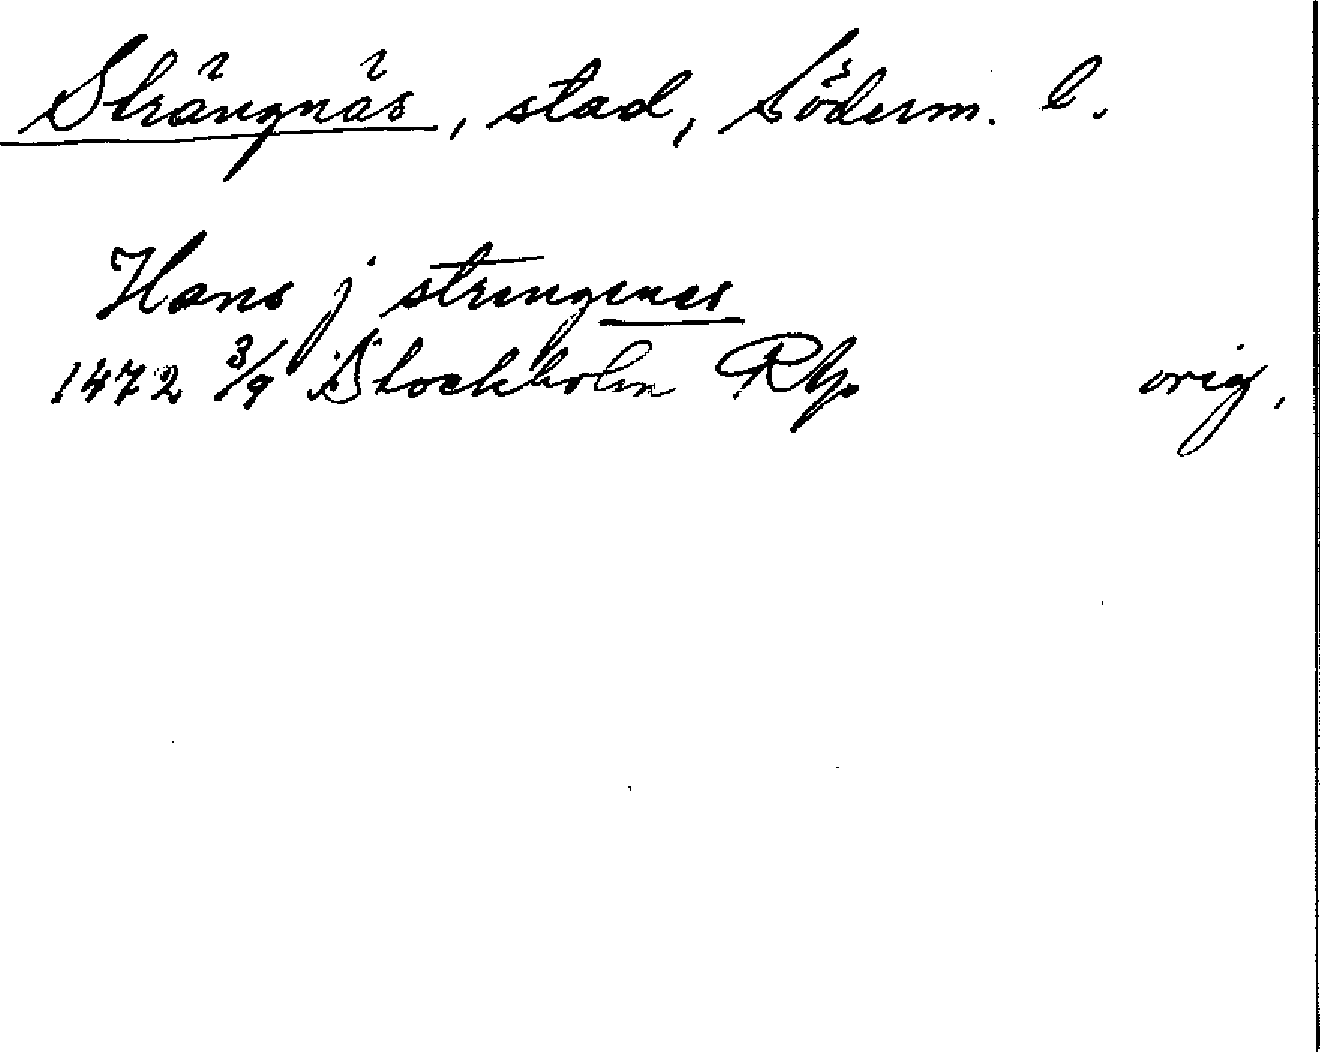 Strängnäs, stad, Söderm. l.
Hans j strengenes
1472 3/9 Stockholm Rp. orig.